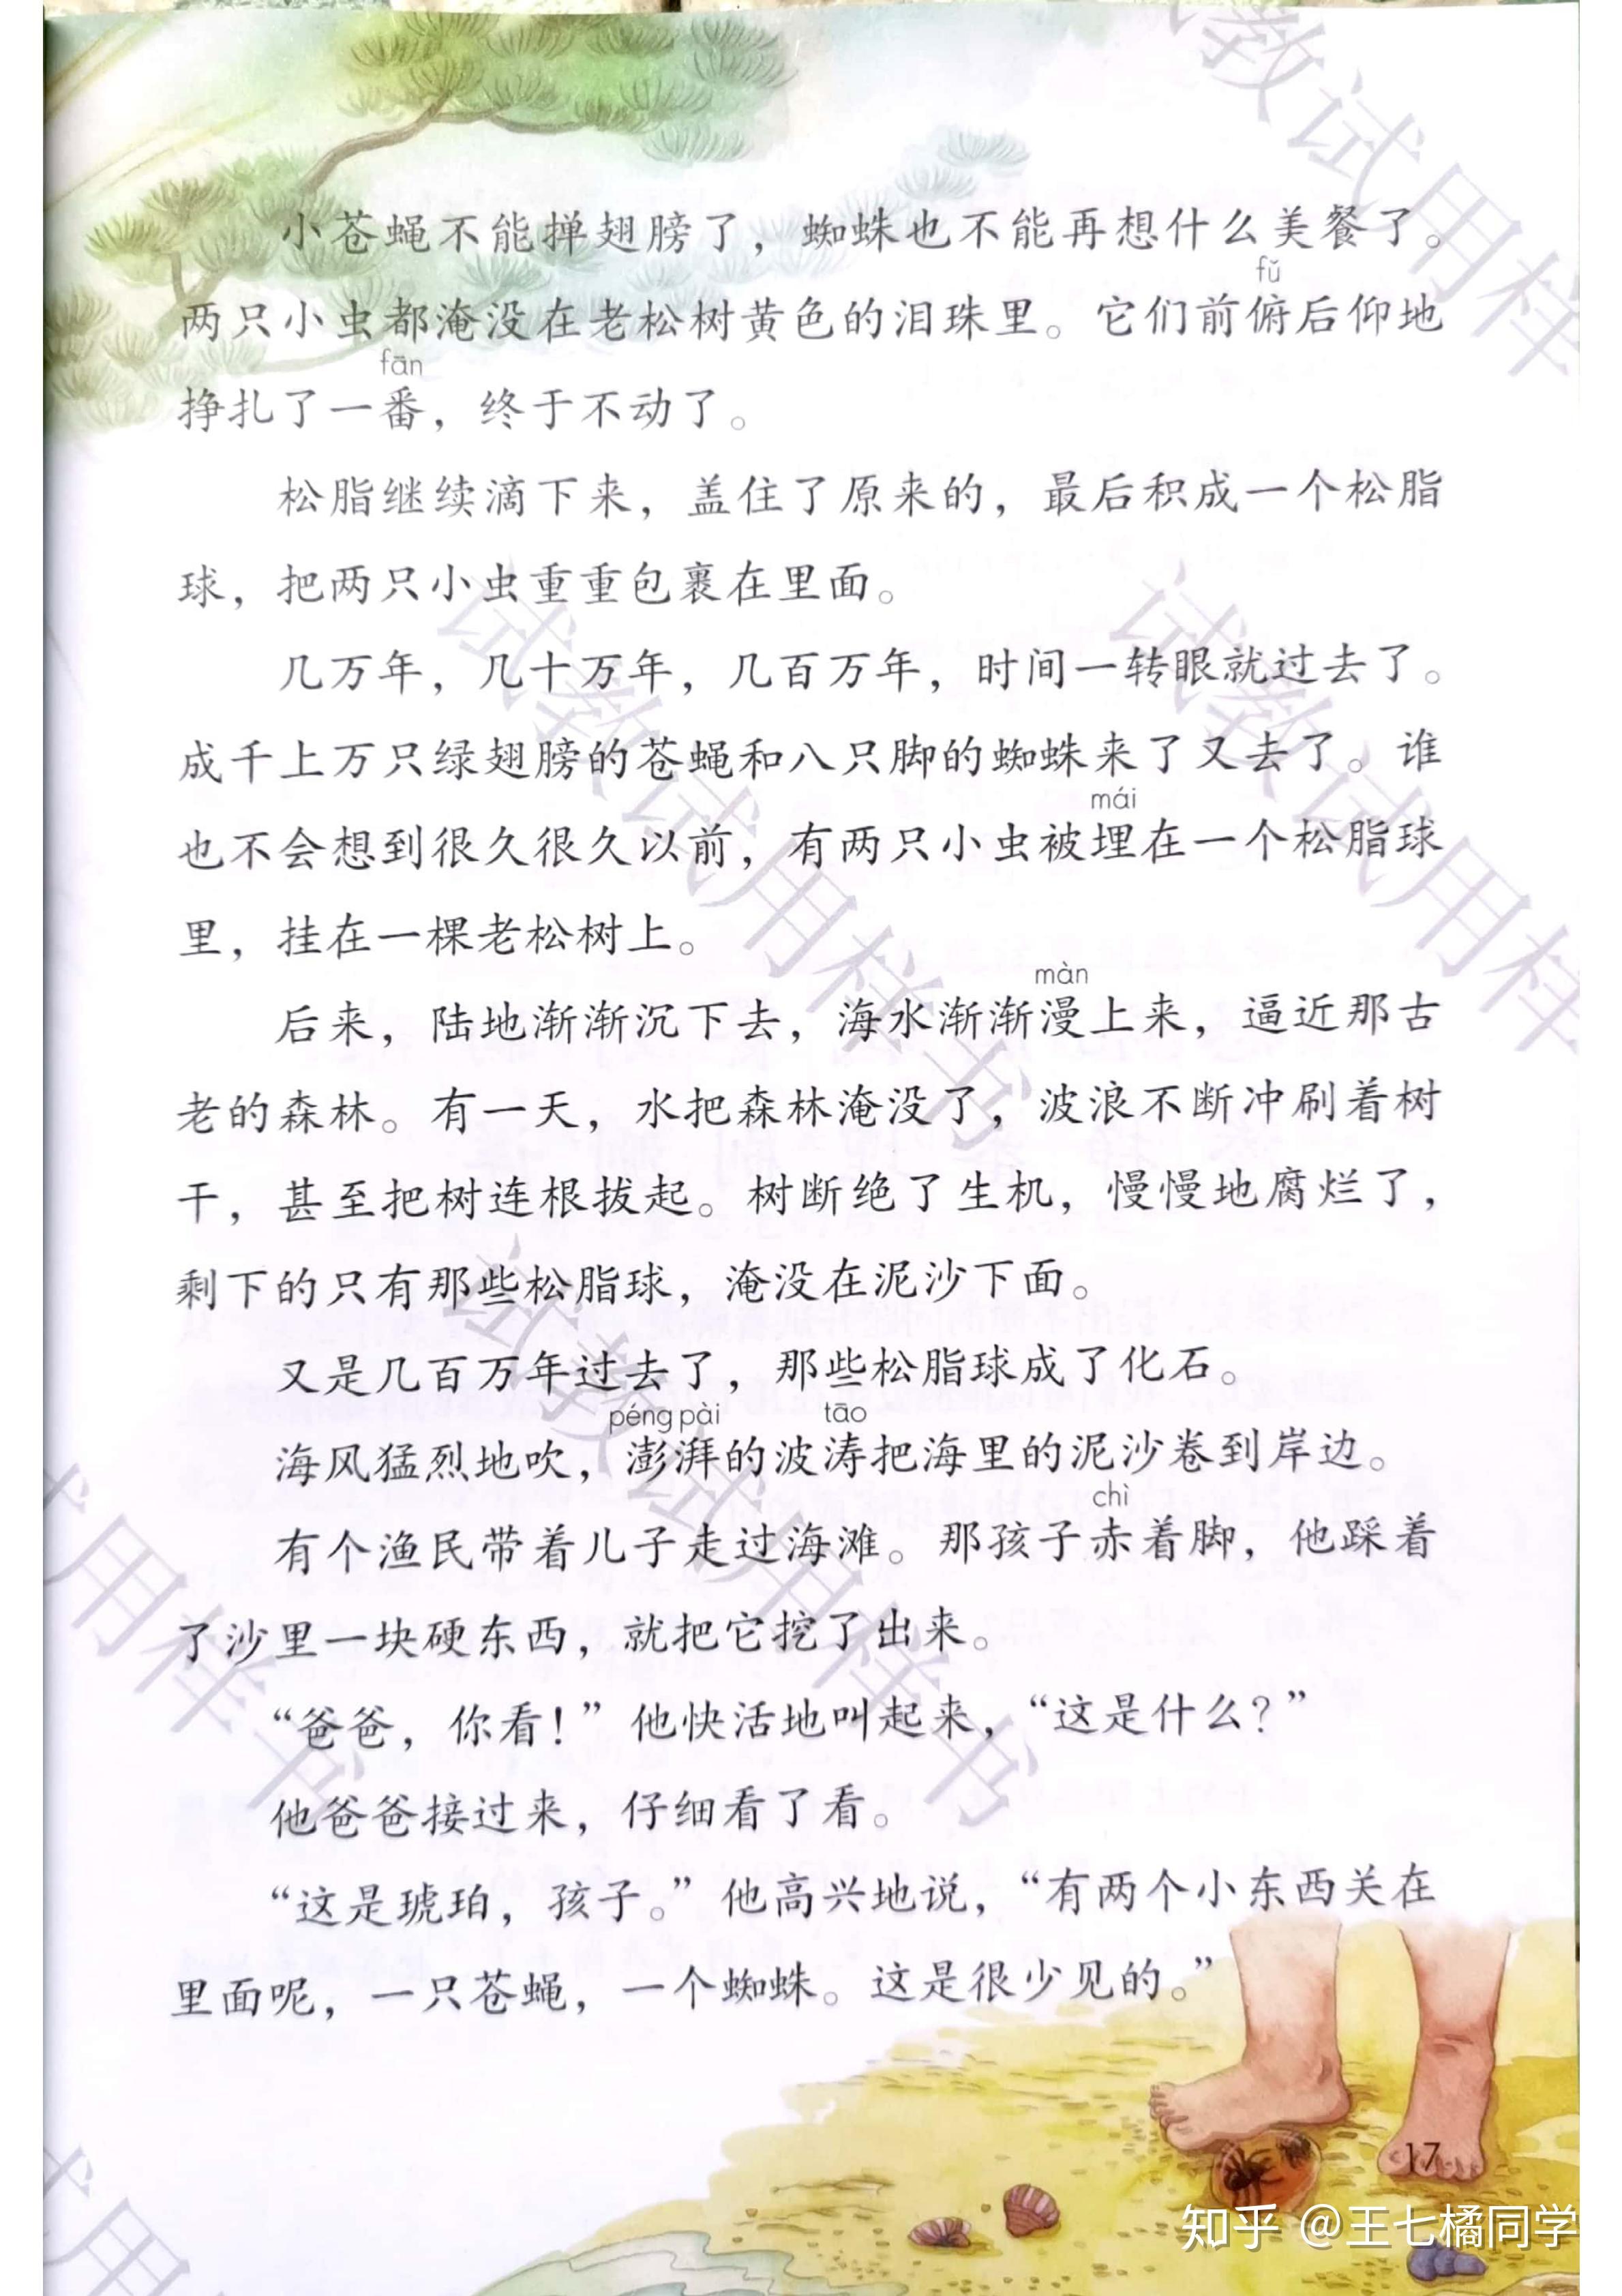 小苍蝇不能掸翅膀了，蜘蛛也不能再想什么美餐了。
fǔ
两只小虫都淹没在老松树黄色的泪珠里。它们前俯后仰地
fān
挣扎了一番，终于不动了。
松脂继续滴下来，盖住了原来的，最后积成一个松脂
球，把两只小虫重重包裹在里面。
几万年，几十万年，几百万年，时间一转眼就过去了。
成千上万只绿翅膀的苍蝇和八只脚的蜘蛛来了又去了。谁
mái
也不会想到很久很久以前，有两只小虫被埋在一个松脂球
里，挂在一棵老松树上。
màn
后来，陆地渐渐沉下去，海水渐渐漫上来，逼近那古
老的森林。有一天，水把森林淹没了，波浪不断冲刷着树
干，甚至把树连根拔起。树断绝了生机，慢慢地腐烂了，
剩下的只有那些松脂球，淹没在泥沙下面。
又是几百万年过去了，那些松脂球成了化石。
péng pài tāo
海风猛烈地吹，澎湃的波涛把海里的泥沙卷到岸边。
chì
有个渔民带着儿子走过海滩。那孩子赤着脚，他踩着
了沙里一块硬东西，就把它挖了出来。
“爸爸，你看！”他快活地叫起来，“这是什么？”
他爸爸接过来，仔细看了看。
“这是琥珀，孩子。”他高兴地说，“有两个小东西关在
里面呢，一只苍蝇，一个蜘蛛。这是很少见的。”
17
知乎 @王七橘同学
试教试用样书